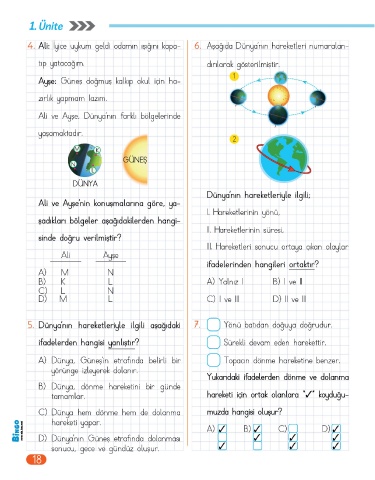 1. Ünite
4. Ali: İyice uykum geldi odamın ışığını kapa-
tıp yatacağım.
Ayşe: Güneş doğmuş kalkıp okul için ha-
zırlık yapmam lazım.
Ali ve Ayşe, Dünya'nın farklı bölgelerinde
yaşamaktadır.
GÜNEŞ
DÜNYA
Ali ve Ayşe'nin konuşmalarına göre, ya-
şadıkları bölgeler aşağıdakilerden hangi-
sinde doğru verilmiştir?
Ali Ayşe
A) M N
B) K L
C) L N
D) M L
5. Dünya'nın hareketleriyle ilgili aşağıdaki
ifadelerden hangisi yanlıştır?
A) Dünya, Güneş'in etrafında belirli bir
yörünge izleyerek dolanır.
B) Dünya, dönme hareketini bir günde
tamamlar.
C) Dünya hem dönme hem de dolanma
hareketi yapar.
D) Dünya'nın Güneş etrafında dolanması
sonucu, gece ve gündüz oluşur.
6. Aşağıda Dünya'nın hareketleri numaralan-
dırılarak gösterilmiştir.
1
2
Dünya'nın hareketleriyle ilgili;
I. Hareketlerinin yönü,
II. Hareketlerinin süresi,
III. Hareketleri sonucu ortaya çıkan olaylar
ifadelerinden hangileri ortaktır?
A) Yalnız I B) I ve II
C) I ve III D) II ve III
7. Yönü batıdan doğuya doğrudur.
Sürekli devam eden harekettir.
Topacın dönme hareketine benzer.
Yukarıdaki ifadelerden dönme ve dolanma
hareketi için ortak olanlara "✓" koyduğu-
muzda hangisi oluşur?
A) ✓ B) ✓ C) D) ✓
✓ ✓ ✓
✓ ✓ ✓
BİNGO
18